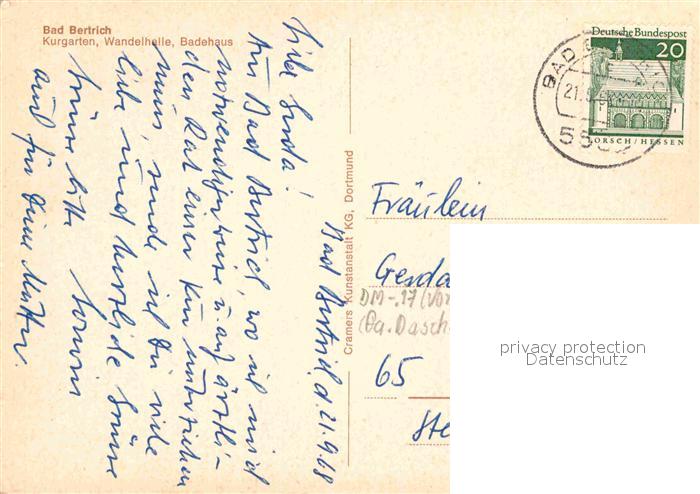 Bad Bertrich
Kurgarten, Wandelhalle, Badehaus
Bad Bertrich, d. 21.9.68
Liebe Gerda!
Aus Bad Bertrich, wo ich mich
notwendigerweise u. auf ärztli-
chen Rat einer Kur unterziehen
muss, sende ich Dir viele
liebe und herzliche Grüsse
Grüsse bitte
auch für Deine Mutter.
Cramers Kunstanstalt KG, Dortmund
Deutsche Bundespost
20
LORSCH/HESSEN
BAD
21.9.
Fräulein
Gerda
DM -.17 (Vor
(Ga. Dasch
65
privacy protection
Datenschutz